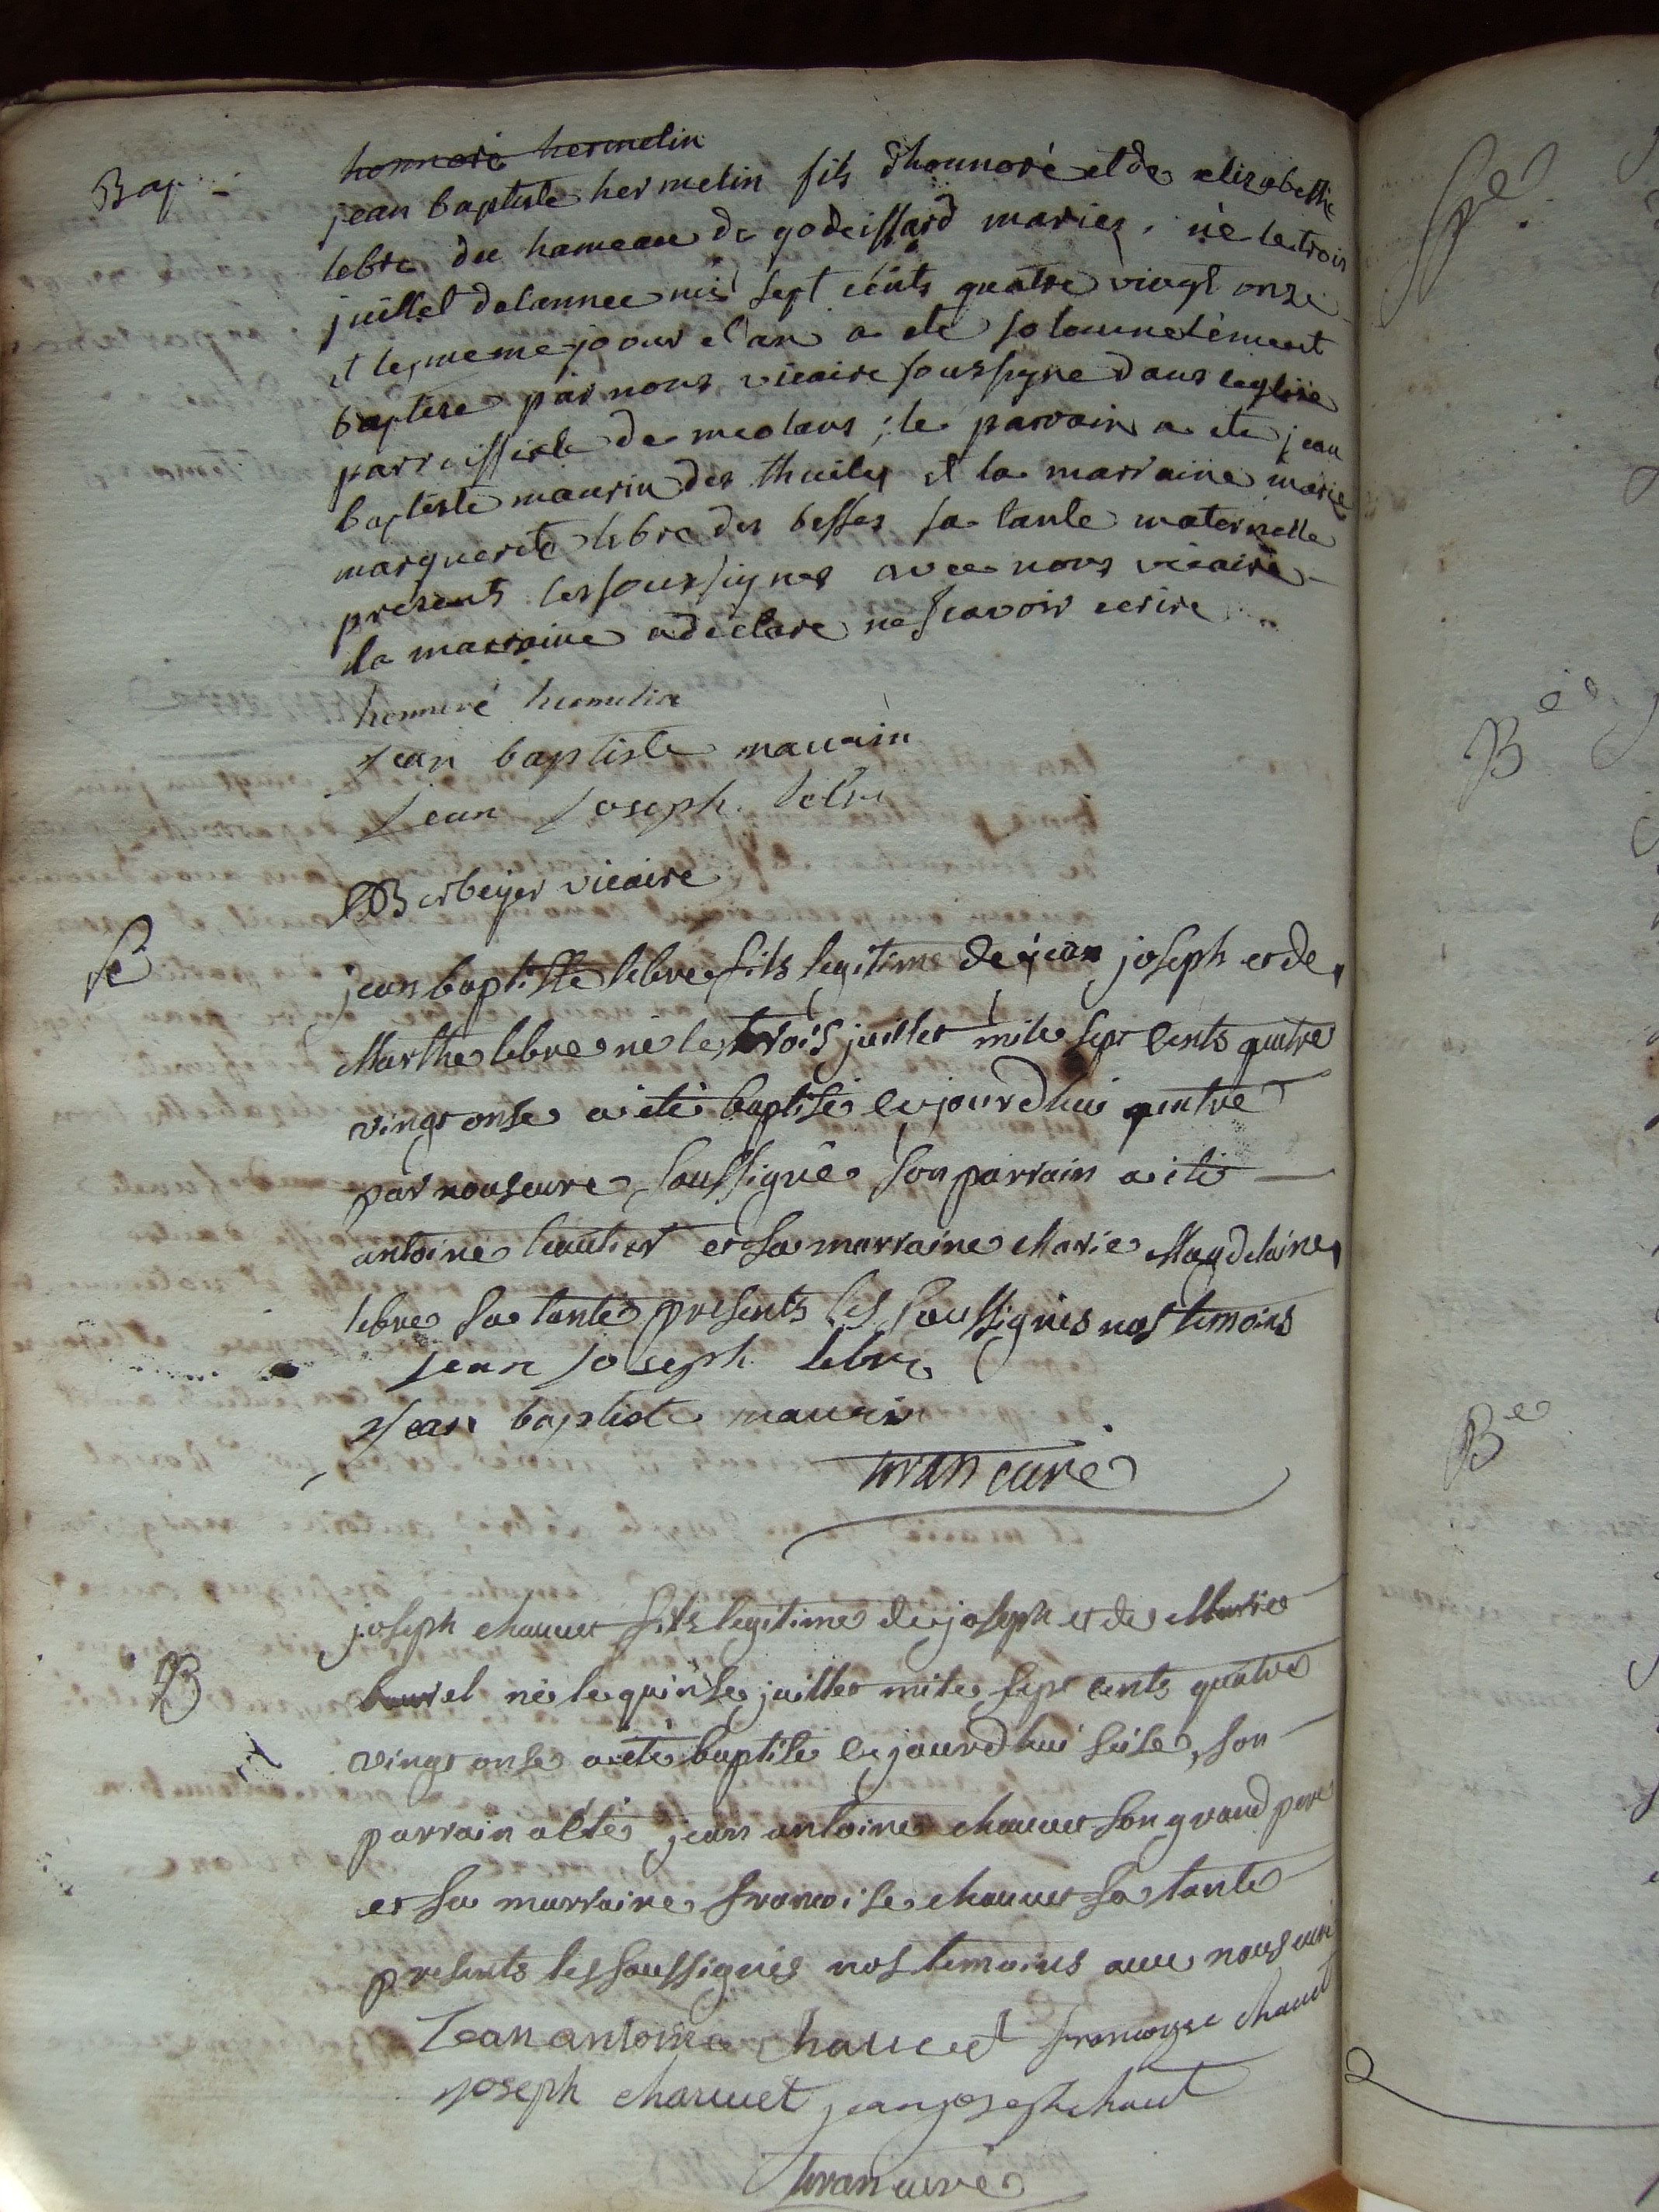 honnoré hermelin
Bap
jean baptiste hermelin fils d'honnoré et de elizabethe
lebre du hameau de godeissard mariez, né le trois
juillet de lannee mil sept cents quatre vingt onze
et le meme jour et an a ete solemnelement
baptise par nous vicaire soussigne dans leglise
parroissiale de meolans; le parrain a ete jean
baptiste maurin des thuiles et la marraine marie
marguerite lebre des besses sa tante maternelle
presents les soussignes avec nous vicaire
la marraine a declare ne scavoir ecrire
honnoré hermelin
jean baptiste maurin
jean joseph lebre
Berbeyer vicaire
jean baptiste lebre fils legitime de jean joseph et de
Marthe lebre né le trois juillet mile sept cents quatre
vingt onse a été baptisé ce jourd'hui quatre
par nous curé soussigné son parrain a été
antoine lautier et sa marraine Marie Magdelaine
lebre sa tante presents les soussignés nos temoins
jean joseph lebre
jean baptiste maurin
tiran curé
B
joseph chauvet fils legitime de joseph et de Marie
né le quinse juillet mile sept cents quatre
vingt onse a été baptisé ce jourd'hui seise, son
parrain a été jean antoine chauvet son grand pere
et sa marraine francoise chauvet sa tante
presents les soussignés nos temoins avec nous curé
Jean antoine chauvet francoise chauvet
joseph chauvet jean joseph chauvet
tiran curé
B
B